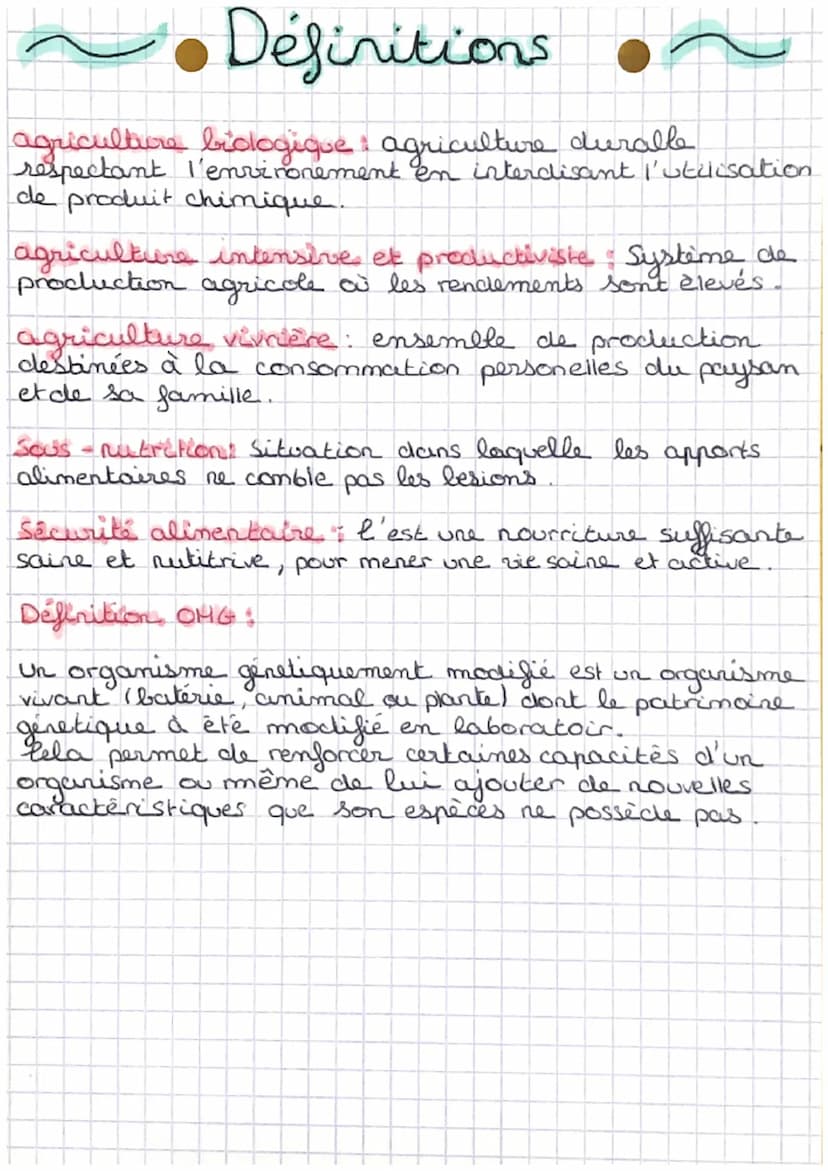 Définitions
agriculture biologique : agriculture durable
respectant l'environement en interdisant l'utilisation
de produit chimique.
agriculture intensive et productiviste : Système de
production agricole où les rendements sont élevés.
agriculture vivrière : ensemble de production
destinées à la consommation personelles du paysan
et de sa famille.
Sous-nutrition : Situation dans laquelle les apports
alimentaires ne comble pas les besions.
Sécurité alimentaire : C'est une nourriture suffisante
saine et nutitrive, pour mener une vie saine et active.
Définition OMG :
Un organisme génetiquement modifié est un organisme
vivant (batérie, animal ou plante) dont le patrimoine
génetique à été modifié en laboratoir.
Cela permet de renforcer certaines capacités d'un
organisme ou même de lui ajouter de nouvelles
caractéristiques que son espèces ne possède pas.